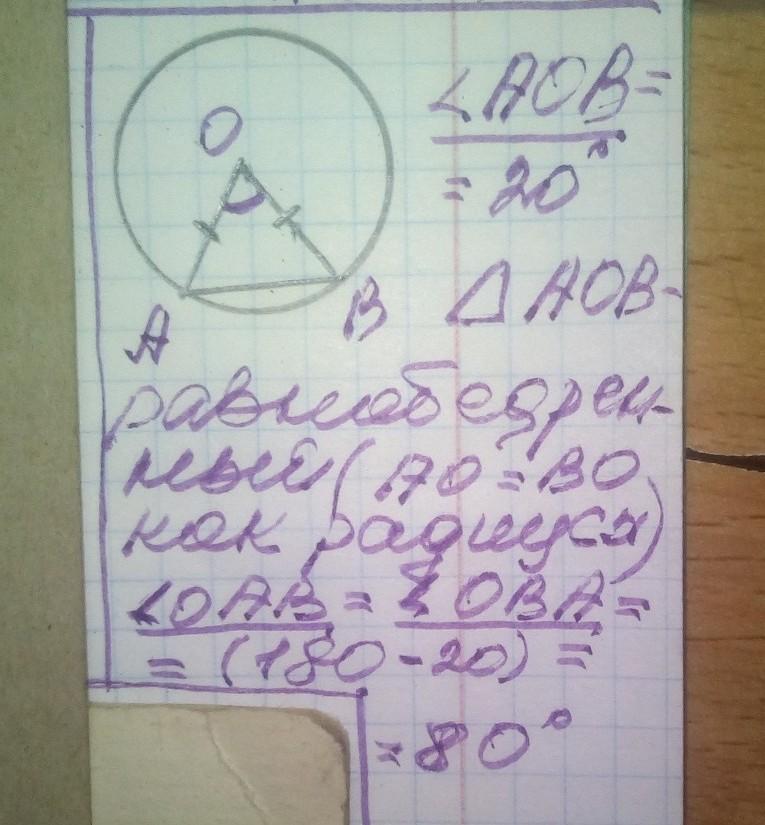 O
A
B
∠AOB=
= 20°
△ AOB-
равнобедрен-
ный (AO = BO
как радиусы)
∠OAB = ∠OBA =
= (180 - 20) =
= 80°